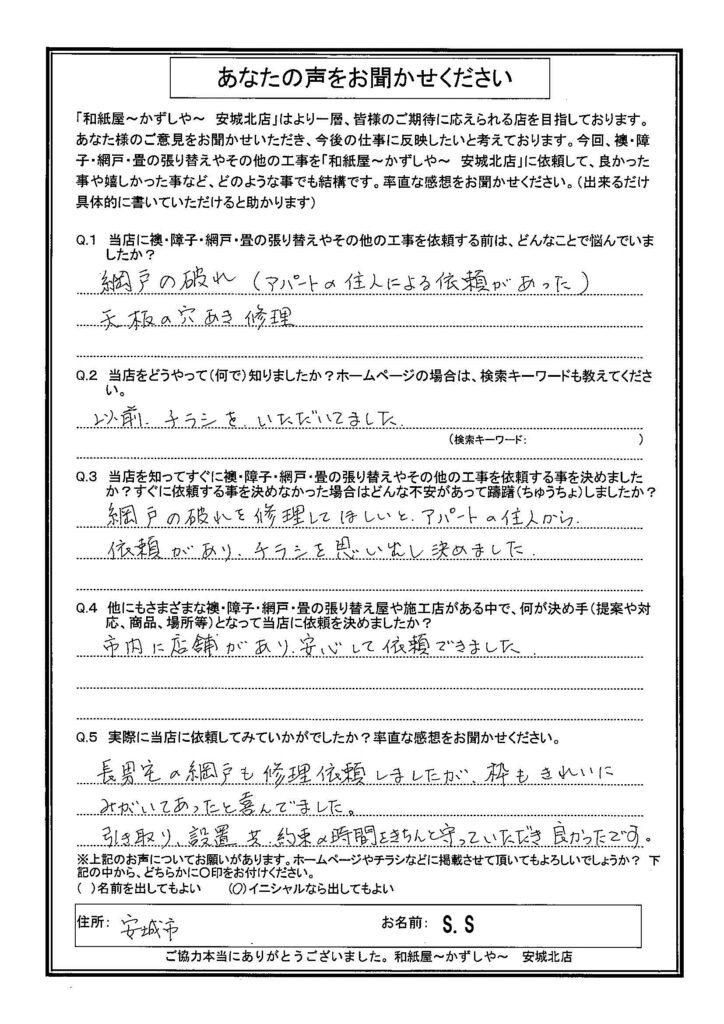 あなたの声をお聞かせください
「和紙屋～かずしや～　安城北店」はより一層、皆様のご期待に応えられる店を目指しております。
あなた様のご意見をお聞かせいただき、今後の仕事に反映したいと考えております。今回、襖・障
子・網戸・畳の張り替えやその他の工事を「和紙屋～かずしや～　安城北店」に依頼して、良かった
事や嬉しかった事など、どのような事でも結構です。率直な感想をお聞かせください。（出来るだけ
具体的に書いていただけると助かります）
Q.1　当店に襖・障子・網戸・畳の張り替えやその他の工事を依頼する前は、どんなことで悩んでいま
したか？
網戸の破れ（アパートの住人による依頼があった）
天板の穴あき修理
Q.2　当店をどうやって（何で）知りましたか？ホームページの場合は、検索キーワードも教えてくださ
い。
以前、チラシを、いただいてました。
（検索キーワード：　　　　　　　　）
Q.3　当店を知ってすぐに襖・障子・網戸・畳の張り替えやその他の工事を依頼する事を決めました
か？すぐに依頼する事を決めなかった場合はどんな不安があって躊躇（ちゅうちょ）しましたか？
網戸の破れを修理してほしいと、アパートの住人から、
依頼があり、チラシを思い出し決めました。
Q.4　他にもさまざまな襖・障子・網戸・畳の張り替え屋や施工店がある中で、何が決め手（提案や対
応、商品、場所等）となって当店に依頼を決めましたか？
市内に店舗があり、安心して依頼できました
Q.5　実際に当店に依頼してみていかがでしたか？率直な感想をお聞かせください。
長男宅の網戸も修理依頼しましたが、枠もきれいに
みがいてあったと喜んでました。
引き取り、設置共、約束の時間をきちんと守っていただき良かったです。
※上記のお声についてお願いがあります。ホームページやチラシなどに掲載させて頂いてもよろしいでしょうか？　下
記の中から、どちらかに○印をお付けください。
（　）名前を出してもよい　　（○）イニシャルなら出してもよい
住所：　安城市　　お名前：　S.S
ご協力本当にありがとうございました。和紙屋～かずしや～　安城北店